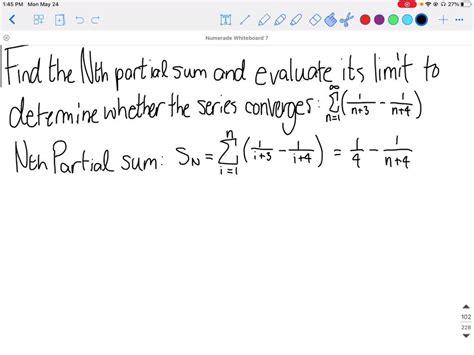 1:45 PM Mon May 24
27%
Numerade Whiteboard 7
Find the Nth partial sum and evaluate its limit to
determine whether the series converges: ∞∑n=1 (1/n+3 - 1/n+4)
Nth Partial sum: SN = n∑i=1 (1/i+3 - 1/i+4) = 1/4 - 1/n+4
102
228